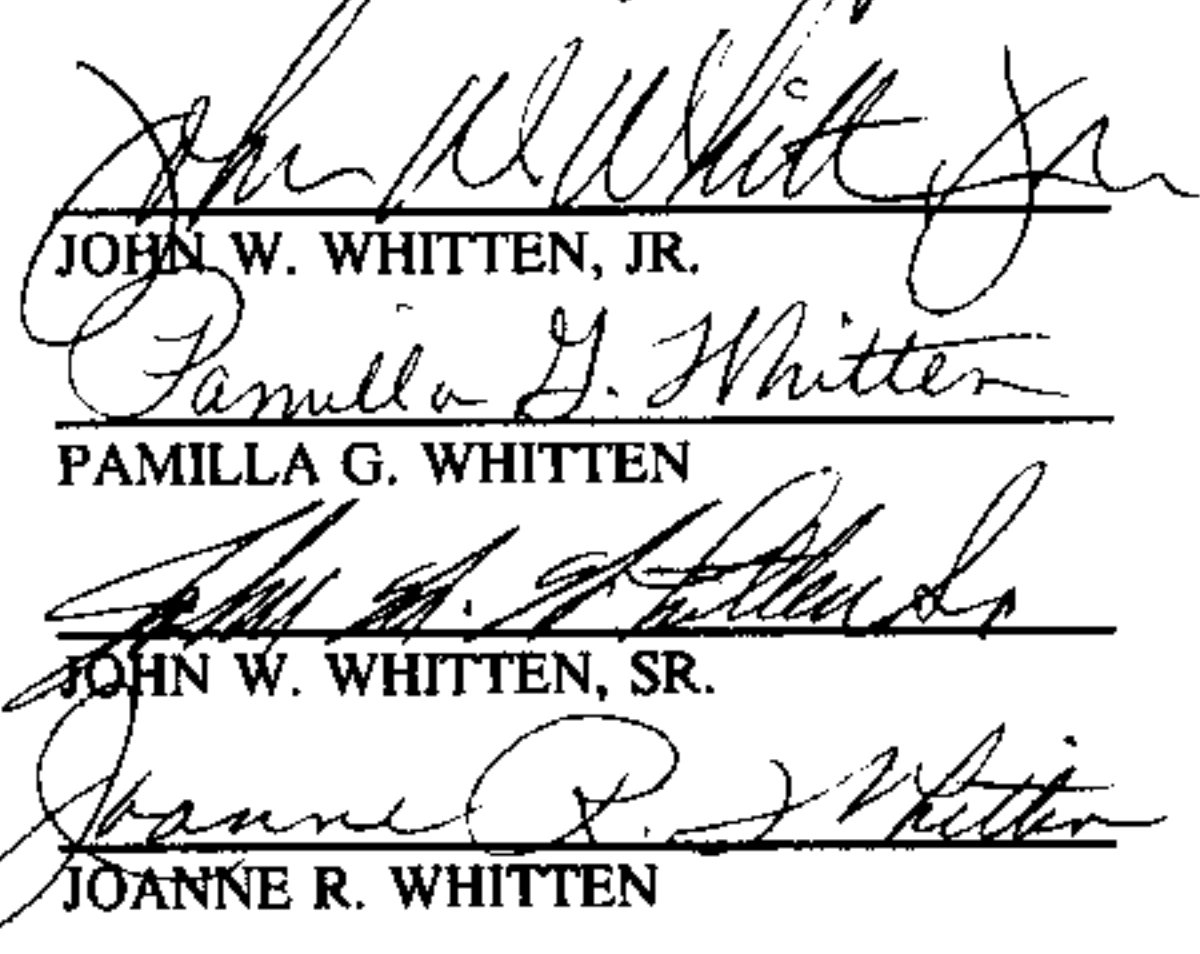 John W Whitten Jr
JOHN W. WHITTEN, JR.
Pamilla G. Whitten
PAMILLA G. WHITTEN
John W. Whitten Sr
JOHN W. WHITTEN, SR.
Joanne R. Whitten
JOANNE R. WHITTEN